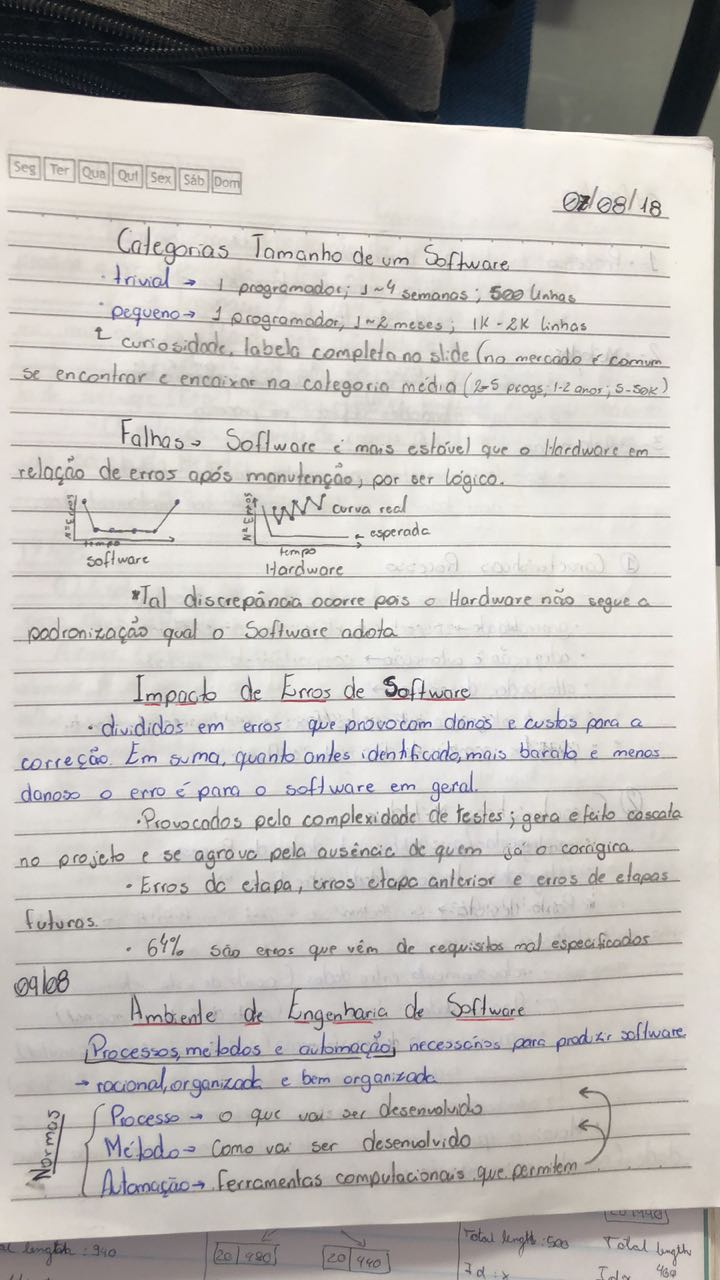 Seg Ter Qua Qui Sex Sáb Dom
07/08/18
Categorias Tamanho de um Software
· trivial → 1 programador; 1~4 semanas; 500 linhas
· pequeno → 1 programador, 1~2 meses; 1K-2K linhas
↳ curiosidade, tabela completa no slide (no mercado é comum
se encontrar e encaixar na categoria média (2-5 progs; 1-2 anos; 5-50K)
Falhas → Software é mais estável que o Hardware em
relação de erros após manutenção, por ser lógico.
Nº Erros
tempo
Software
Nº Erros
curva real
← esperada
tempo
Hardware
*Tal discrepância ocorre pois o Hardware não segue a
padronização qual o Software adota
Impacto de Erros de Software
· divididos em erros que provocam danos e custos para a
correção. Em suma, quanto antes identificado, mais barato e menos
danoso o erro é para o software em geral.
· Provocados pela complexidade de testes; gera efeito cascata
no projeto e se agrava pela ausência de quem já o corrigira.
· Erros da etapa, erros etapa anterior e erros de etapas
futuros.
· 64% são erros que vêm de requisitos mal especificados
09/08
Ambiente de Engenharia de Software
Processos, métodos e automação, necessários para produzir software
→ racional, organizada e bem organizada
Normas
Processo → o que vai ser desenvolvido
Método → Como vai ser desenvolvido
Automação → Ferramentas computacionais que permitem
length: 940
20 480
20 440
Total length: 500
Id: x
20 440
Total length
460
Id x